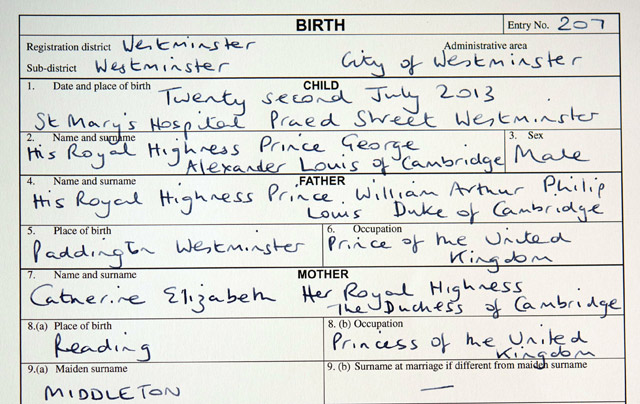 BIRTH Entry No. 207
Registration district Westminster Administrative area
Sub-district Westminster City of Westminster
1. Date and place of birth CHILD
Twenty second July 2013
St Mary's Hospital Praed Street Westminster
2. Name and surname 3. Sex
His Royal Highness Prince George
Alexander Louis of Cambridge Male
4. Name and surname FATHER
His Royal Highness Prince William Arthur Philip
Louis Duke of Cambridge
5. Place of birth 6. Occupation
Paddington Westminster Prince of the United
Kingdom
7. Name and surname MOTHER
Catherine Elizabeth Her Royal Highness
The Duchess of Cambridge
8.(a) Place of birth 8. (b) Occupation
Reading Princess of the United
Kingdom
9.(a) Maiden surname 9. (b) Surname at marriage if different from maiden surname
MIDDLETON —